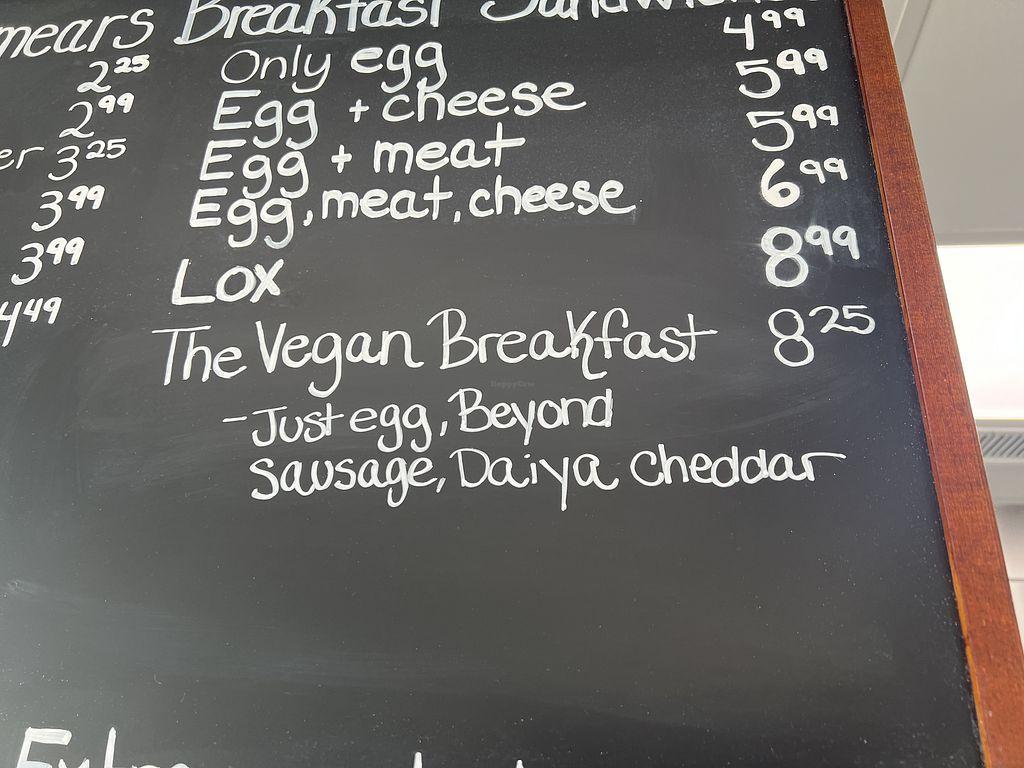 Breakfast
2.25
2.99
3.25
3.99
3.99
4.49
Only egg 4.99
Egg + cheese 5.99
Egg + meat 5.99
Egg, meat, cheese 6.99
Lox 8.99
The Vegan Breakfast 8.25
- Just egg, Beyond
sausage, Daiya cheddar